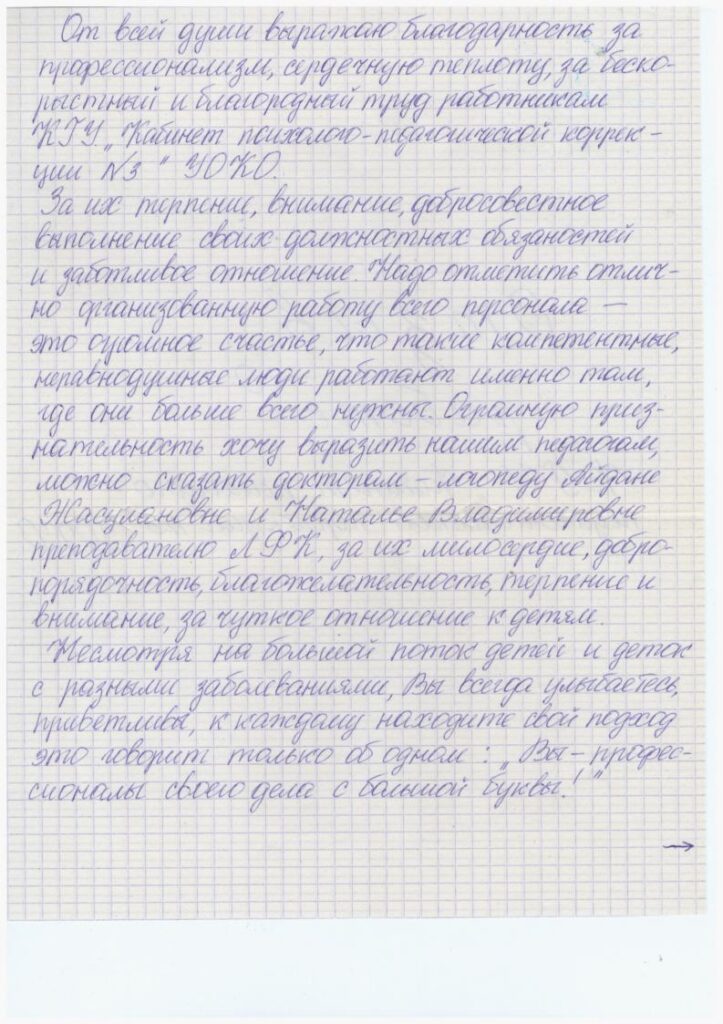 От всей души выражаю благодарность за
профессионализм, сердечную теплоту, за беско-
рыстный и благородный труд работникам
КГУ „Кабинет психолого-педагогической коррек-
ции №3" УОКО.
За их терпение, внимание, добросовестное
выполнение своих должностных обязаностей
и заботливое отношение. Надо отметить отлич-
но организованную работу всего персонала —
это огромное счастье, что такие компетентные,
неравнодушные люди работают именно там,
где они больше всего нужны. Огромную приз-
нательность хочу выразить нашим педагогам,
можно сказать докторам – логопеду Айдане
Жаслановне и Наталье Владимировне
преподавателю ЛФК, за их милосердие, добро-
порядочность, благожелательность, терпение и
внимание, за чуткое отношение к детям.
Несмотря на большой поток детей и деток
с разными заболеваниями, Вы всегда улыбаетесь,
приветливы, к каждому находите свой подход
это говорит только об одном: „Вы – профес-
сионалы своего дела с большой буквы!"
→